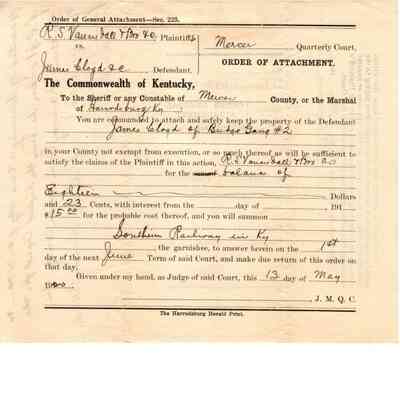 Order of General Attachment—Sec. 225.
R. S. Vanarsdall & Bro &c Plaintiffs
vs.
James Cloyd &c Defendant.
Mercer Quarterly Court,
ORDER OF ATTACHMENT.
The Commonwealth of Kentucky,
To the Sheriff or any Constable of Mercer County, or the Marshal
of Harrodsburg Ky.
You are commanded to attach and safely keep the property of the Defendant
James Cloyd of Bridge Gang #2
in your County not exempt from execution, or so much thereof as will be sufficient to
satisfy the claims of the Plaintiff in this action, R. S. Vanarsdall & Bro &c
for the balance of
Eighteen Dollars
and 23 Cents, with interest from the day of 191
$15.00 for the probable cost thereof, and you will summon
Southern Railway in Ky
the garnishee, to answer herein on the 1st
day of the next June Term of said Court, and make due return of this order on
that day.
Given under my hand, as Judge of said Court, this 13 day of May
J. M. Q. C.
The Harrodsburg Herald Print.